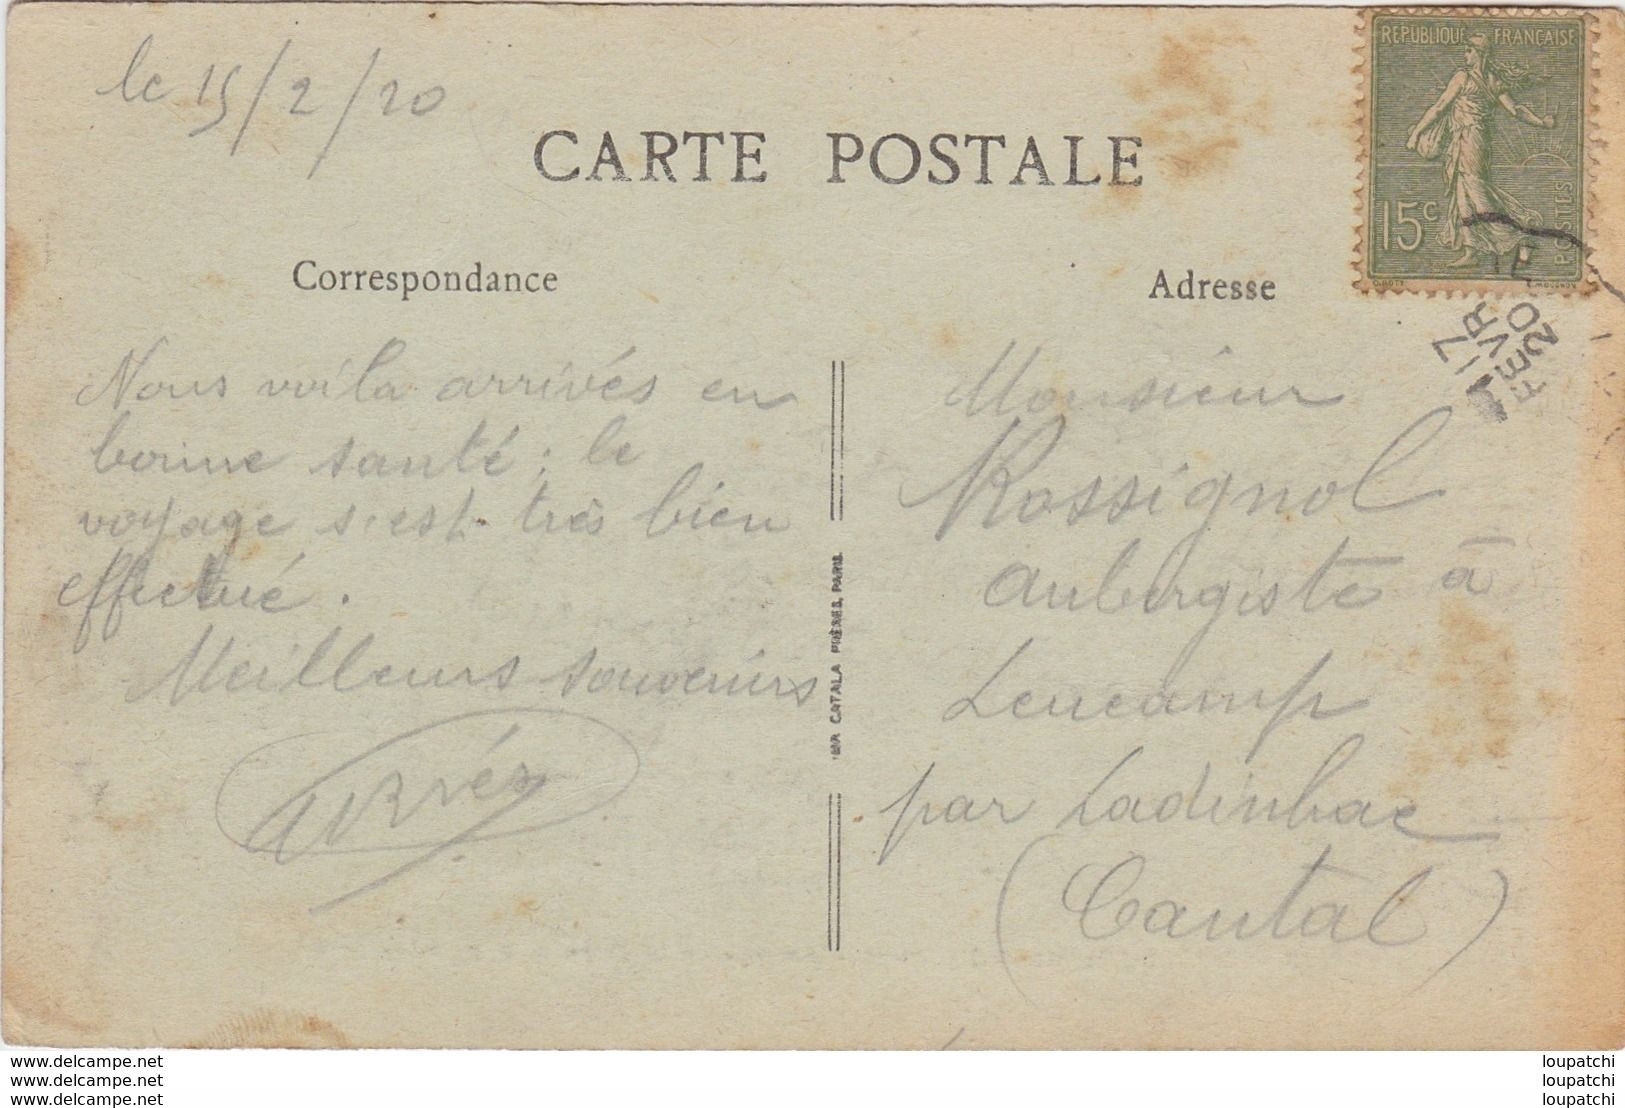 le 15/2/20
CARTE POSTALE
RÉPUBLIQUE FRANÇAISE
15c
POSTES
17
FEVR
20
Correspondance
Adresse
Nous voila arrivés en
bonne santé ; le
voyage s'est très bien
effectué.
Meilleurs souvenirs
Monsieur
Rossignol
aubergiste à
Leucamp
par Ladinhac
(Cantal)
CATALA FRÈRES, PARIS
www.delcampe.net
www.delcampe.net
www.delcampe.net
loupatchi
loupatchi
loupatchi